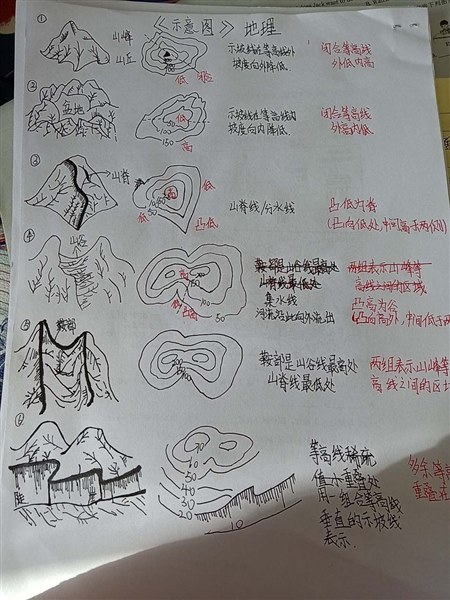 《示意图》 地理
①
山峰
山丘
示坡线在等高线外
坡度向外降低
闭合等高线
外低内高
低
②
盆地
低
100
150
高
示坡线在等高线内
坡度向内降低
闭合等高线
外高内低
③
山脊
高
低
50
低
凸低
山脊线/分水线
凸低为脊
(凸向低处,中间高于两侧)
④
山谷
高
100
50
鞍部是山谷线最高处
山脊线最低处
集水线
两组表示山峰等
高线之间的区域
凸高为谷
⑤
鞍部
鞍部是山谷线最高处
山脊线最低处
两组表示山峰等
高线之间的区域
⑥
70
60
50
40
30
20
10
等高线稀疏
值小重叠处
用一组合等高线
垂直的示坡线
表示.
多条等高
重叠在